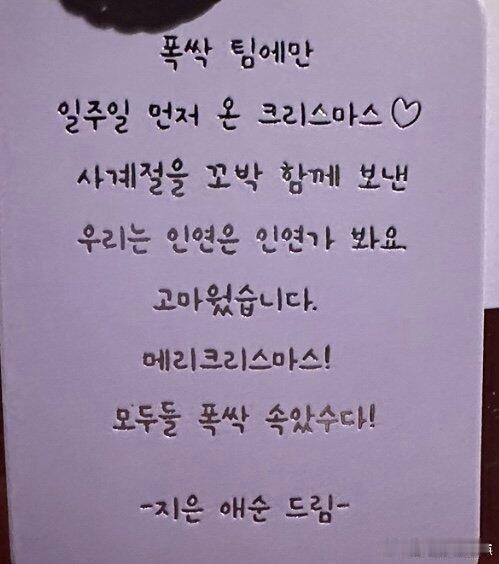 폭싹 팀에만
일주일 먼저 온 크리스마스♡
사계절을 꼬박 함께 보낸
우리는 인연은 인연가 봐요
고마웠습니다.
메리크리스마스!
모두들 폭싹 속았수다!
-지은 애순 드림-